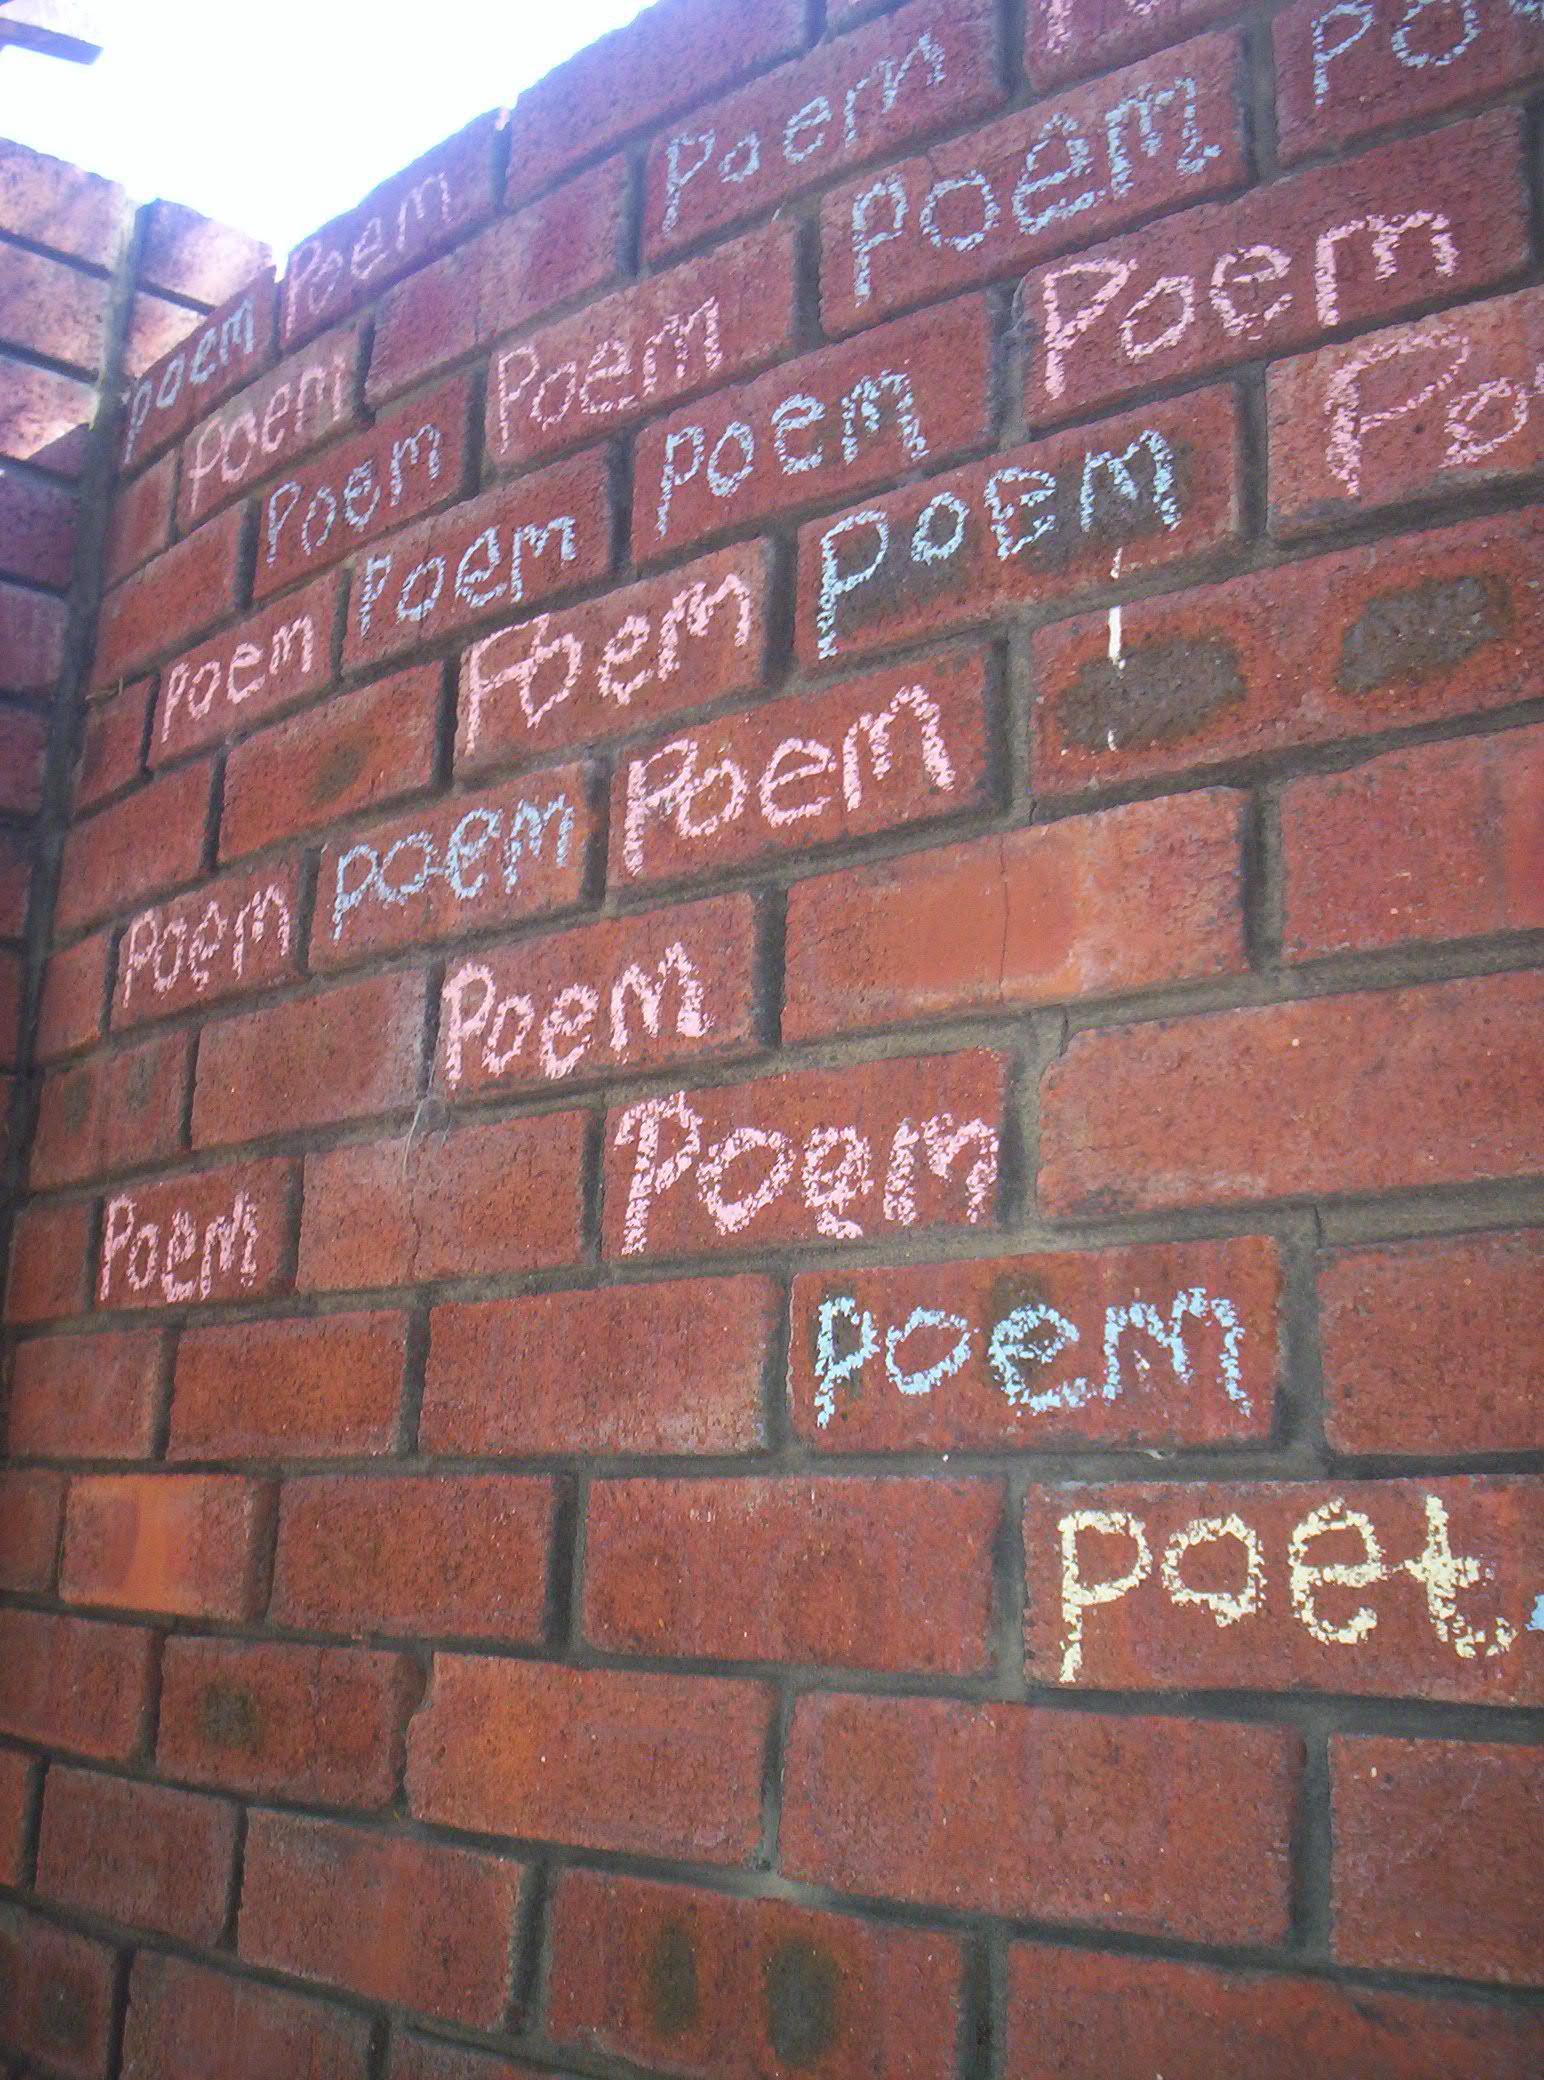 poem Poem
Poem Poem
Poem Poem poem po
Poem Poem poem Poem
Poem poem Po
Poem poem Poem
Poem
Poem Poem
poem
poet